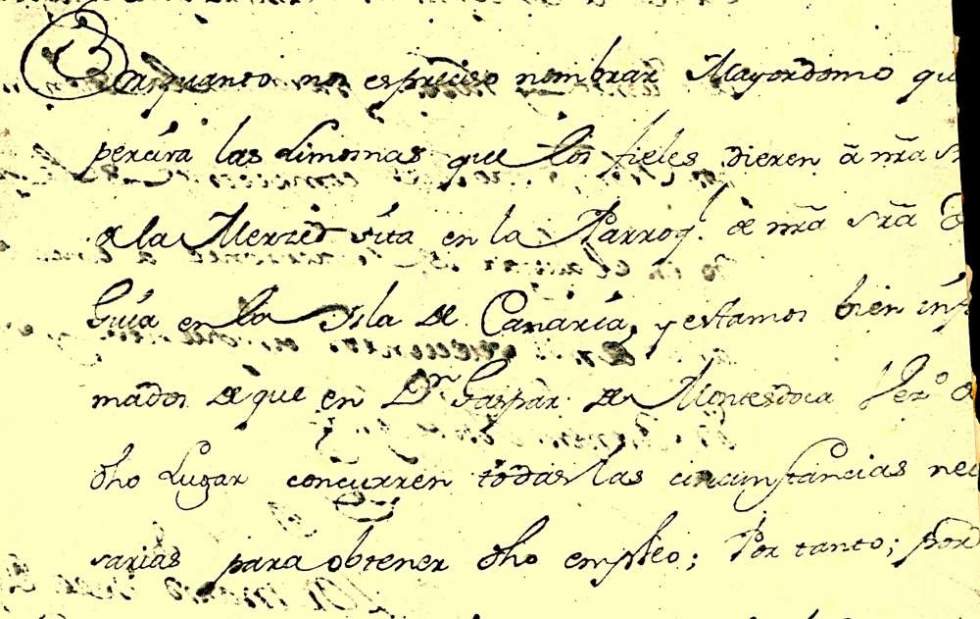 Por quanto nos es preciso nombrar Mayordomo qu
perciva las Limosnas que los fieles dieren â nrã S
de la Merzed sita en la Parroq.l de nrã Srã d
Guía en la Isla de Canaria, y estamos bien inf
mados de que en D.n Gaspar de Montesdoca Vez.o d
dho Lugar concurren todas las circunstancias nec
sarias para obtener dho empleo; Por tanto; por